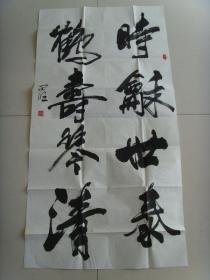 時龢世泰
鶴壽琴清